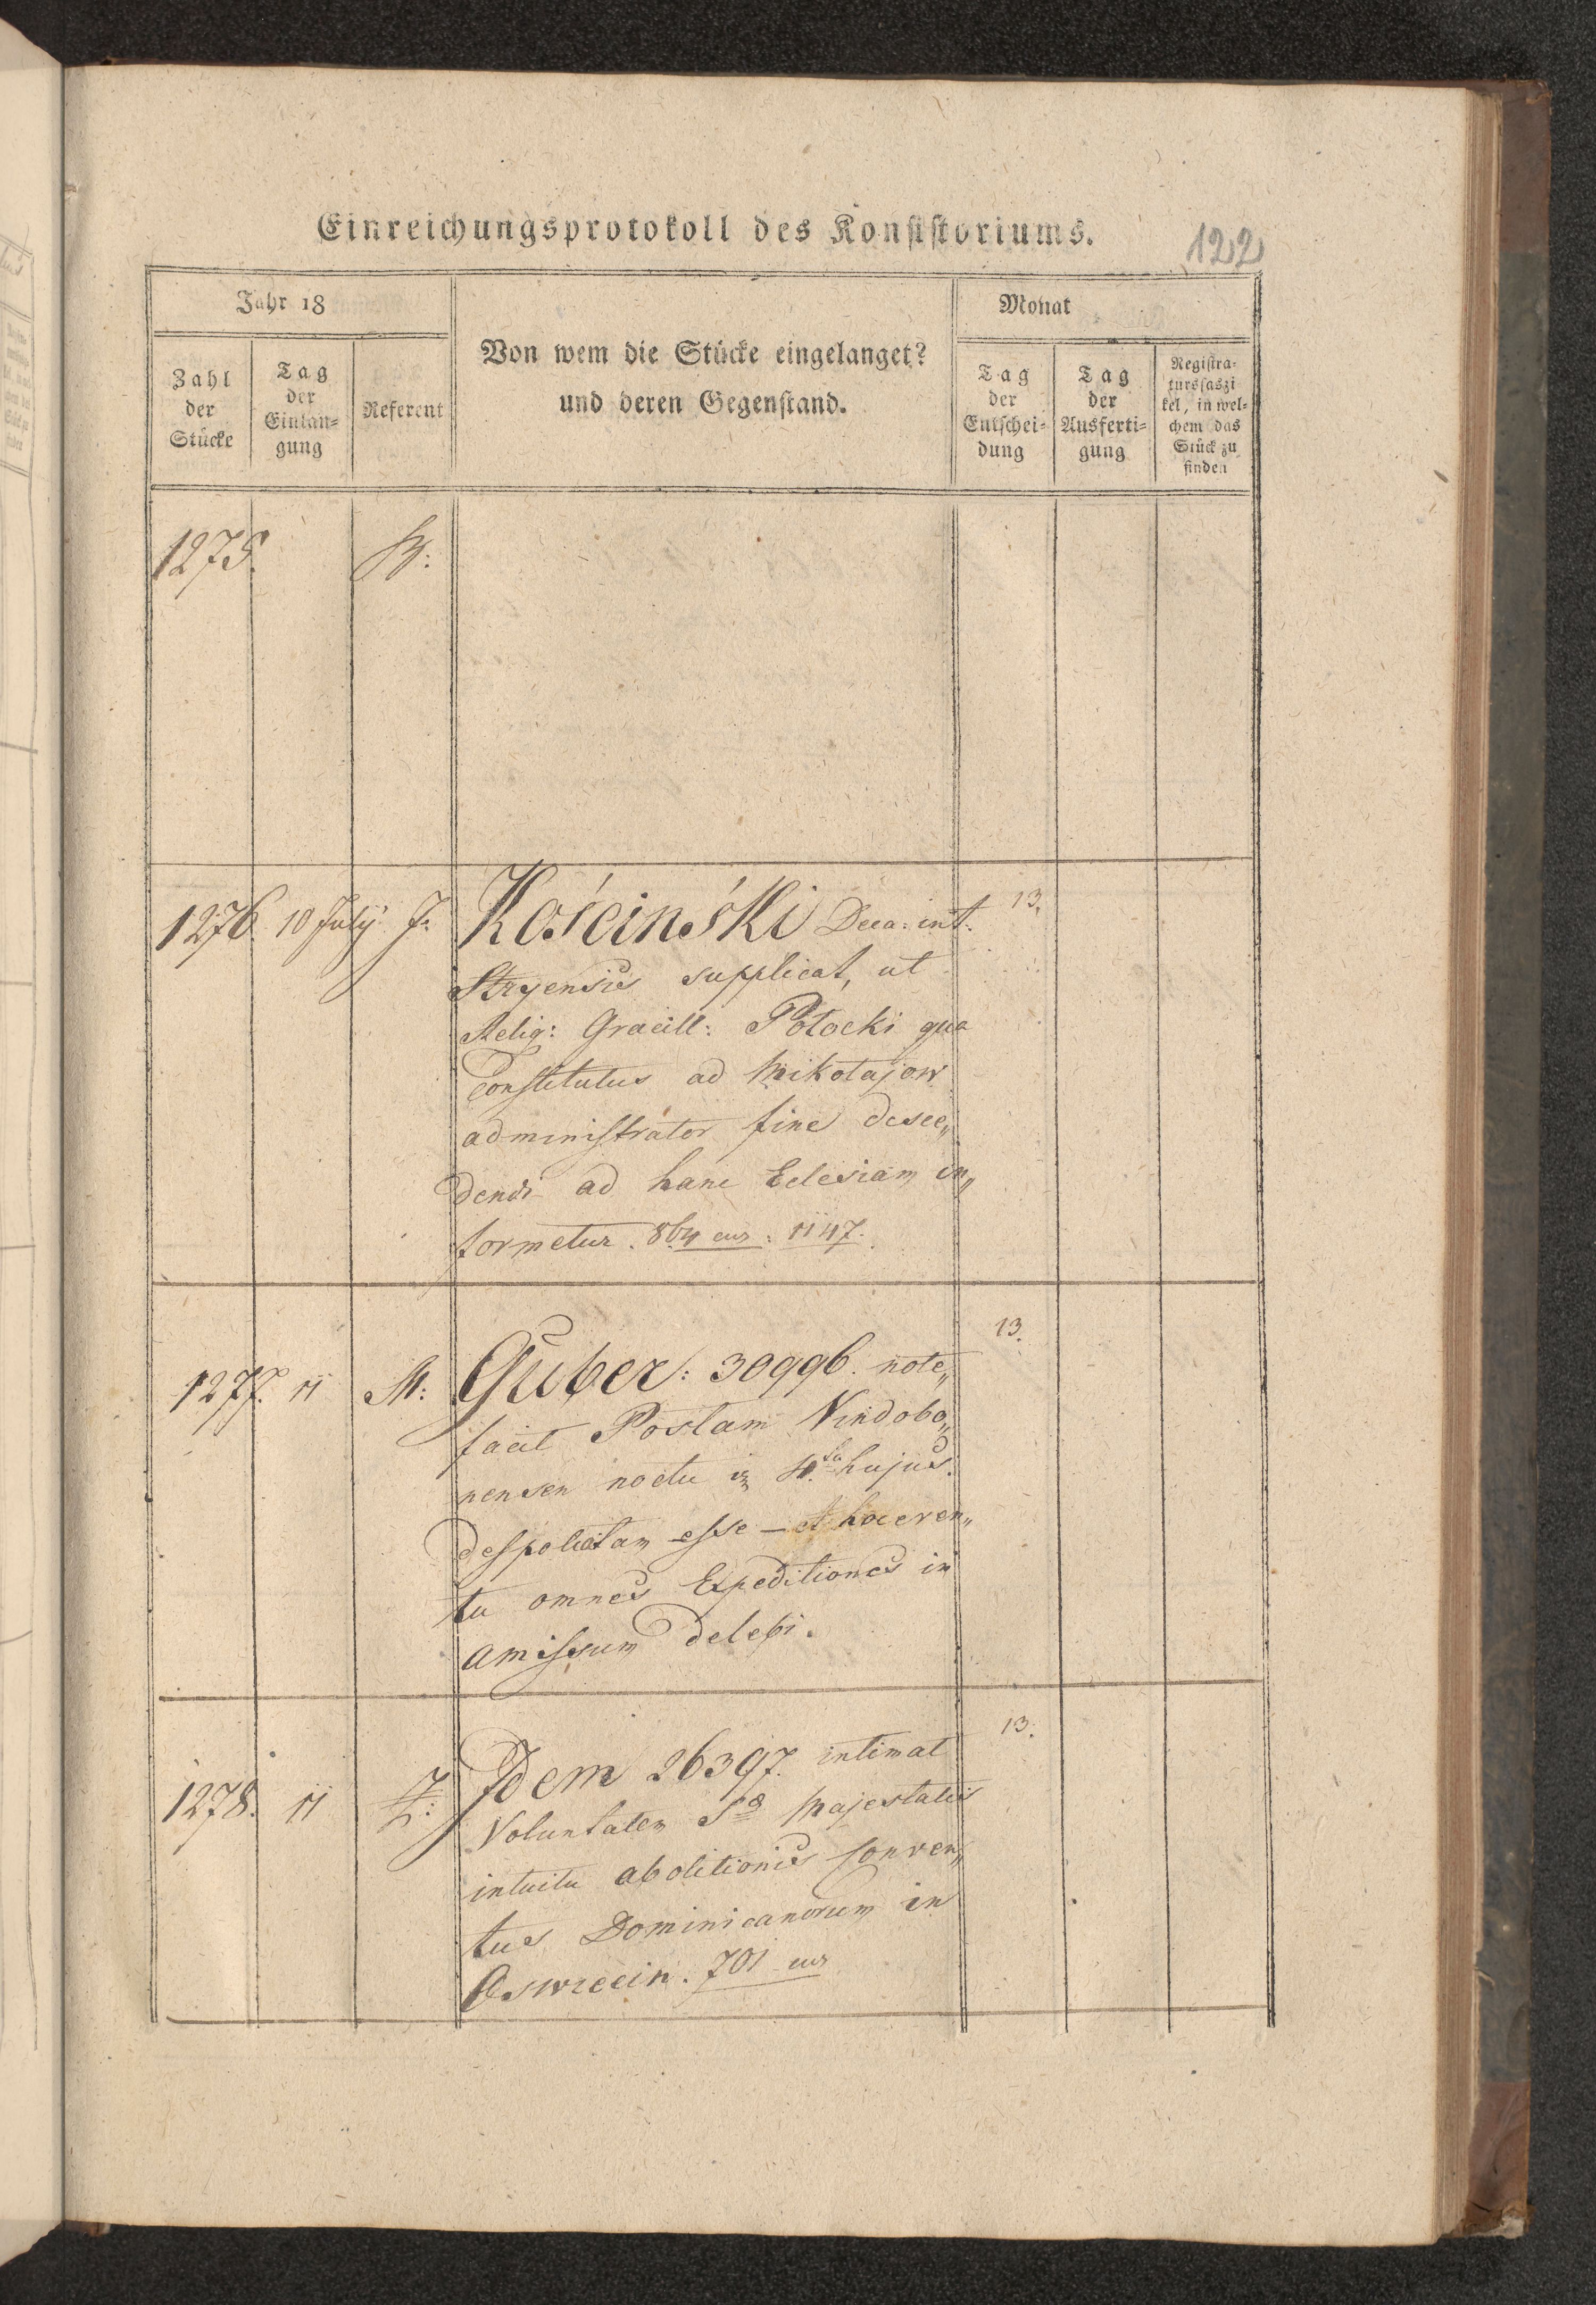 Einreichungsprotokoll des Konsistoriums.
122
Jahr 18
Monat
Zahl der Stücke
Tag der Einlangung
Referent
Von wem die Stücke eingelanget?
und deren Gegenstand.
Tag der Entscheidung
Tag der Ausfertigung
Registratursfaszikel, in welchem das Stück zu finden
1275.
1276. 10 July J. Kościnśki Deca: int: 13.
Stryensis supplicat, ut
Relig: Gracill: Potocki qua
constitutus ad Mikołajow
administrator fine desce„
dendi ad hanc Eclesiam in„
formetur. 864 cur: 1147.
1277. 11 M: Guber: 30996. note„ 13.
facit Postam Vindobo„
nensen noctu in 4.ta hujus.
despoliatam esse – et haeren„
tu omnes Expeditiones in
amissum delebi.
1278. 11 Z: Idem 26397. intimat 13.
Voluntatem Sae Majestatis
intuitu abolitionis Conven„
tus Dominicanorum in
Oswiecin. 701 cur